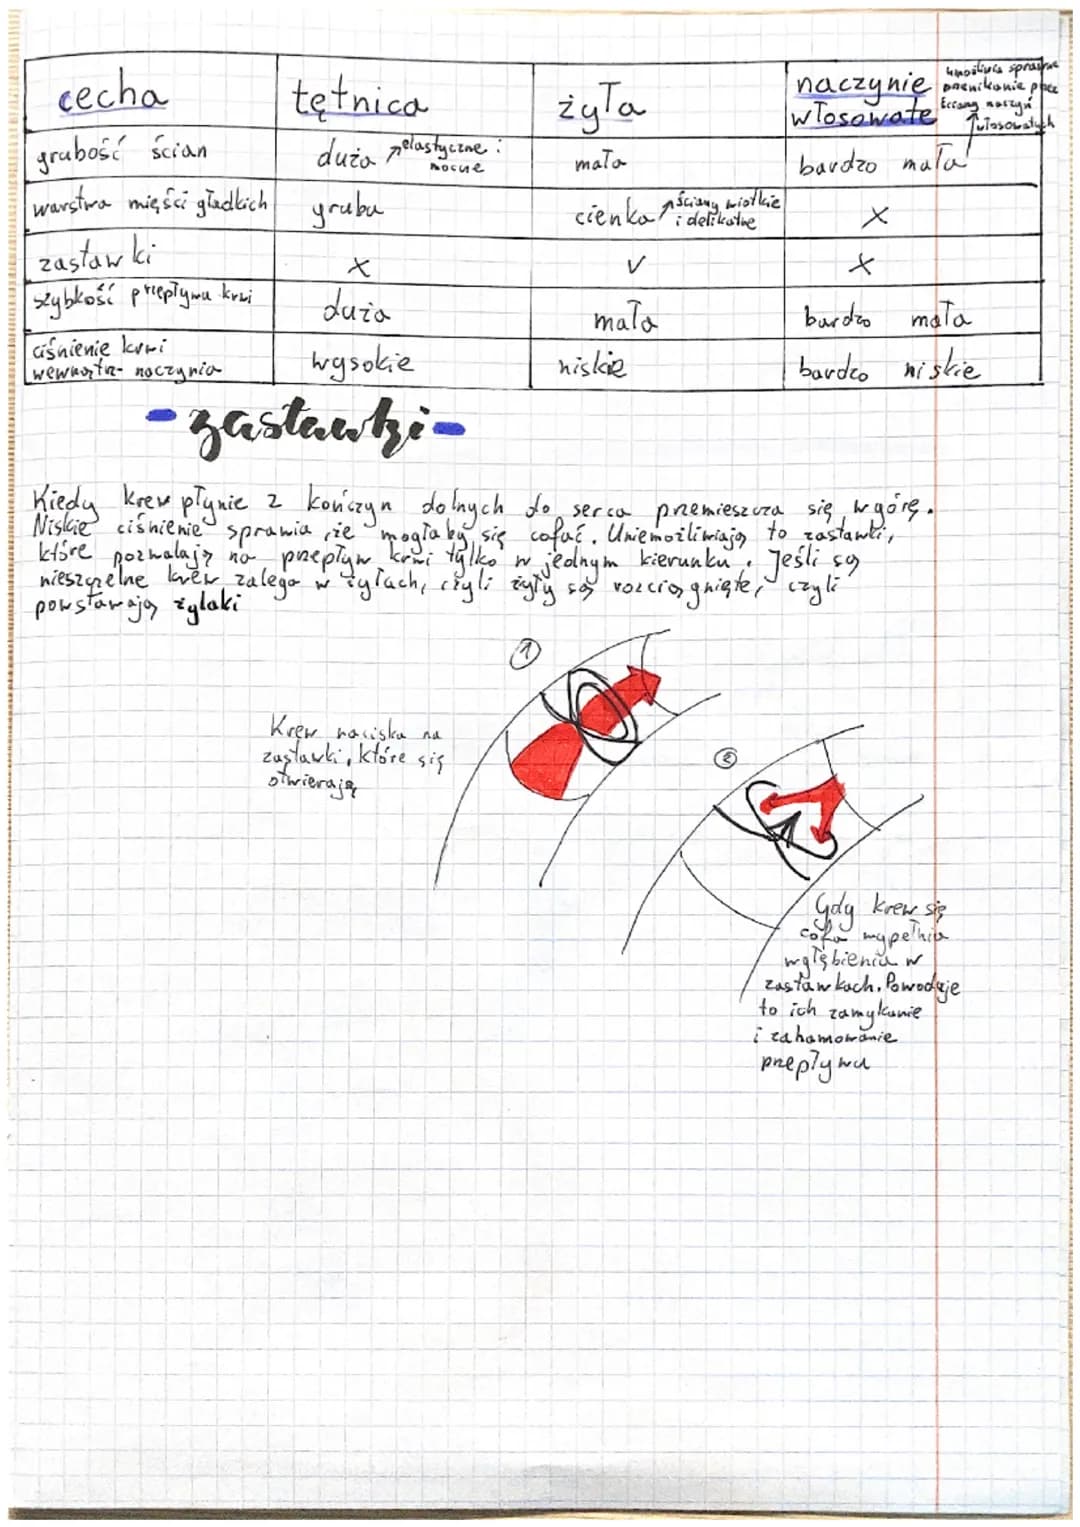 cecha tętnica żyła naczynie włosowate
umożliwia sprawne przenikanie przez ściany naczyń włosowatych
grubość ścian duża elastyczne i mocne mała bardzo mała
warstwa mięści gładkich gruba cienka ściany wiotkie i delikatne x
zastawki x v x
szybkość przepływu krwi duża mała bardzo mała
ciśnienie krwi wewnątrz naczynia wysokie niskie bardzo niskie
- zastawki -
Kiedy krew płynie z kończyn dolnych do serca przemieszcza się w górę.
Niskie ciśnienie sprawia, że mogłaby się cofać. Uniemożliwiają to zastawki,
które pozwalają na przepływ krwi tylko w jednym kierunku. Jeśli są
nieszczelne krew zalega w żyłach, czyli żyły są rozciągnięte, czyli
powstawają żylaki
1
Krew naciska na
zastawki, które się
otwierają
2
Gdy krew się
cofa wypełnia
wgłębienia w
zastawkach. Powoduje
to ich zamykanie
i zahamowanie
przepływu